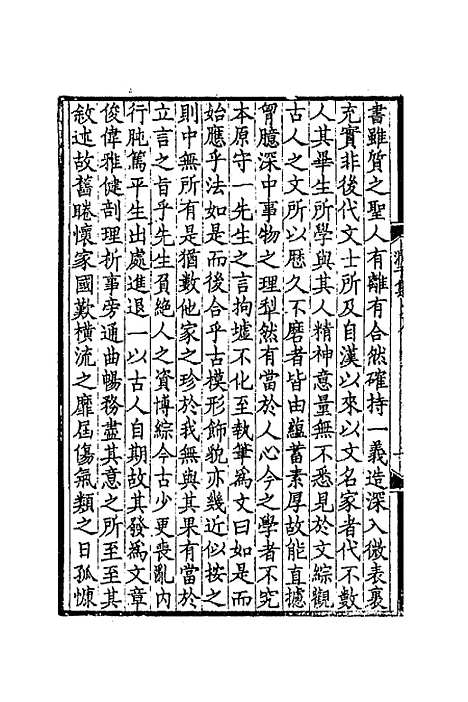 書雖質之聖人有離有合然確持一義造深入微表裏
充實非後代文士所及自漢以來以文名家者代不數
人其畢生所學與其人精神意量無不悉見於文綜觀
古人之文所以歷久不磨者皆由蘊蓄素厚故能直攄
胷臆深中事物之理犁然有當於人心今之學者不究
本原守一先生之言拘墟不化至執筆爲文曰如是而
始應乎法如是而後合乎古模形飾貌亦幾近似按之
則中無所有是猶數他家之珍於我無與其果有當於
立言之旨乎先生負絕人之資博綜今古少更喪亂內
行肫篤平生出處進退一以古人自期故其發爲文章
俊偉雅健剖理析事旁通曲暢務盡其意之所至至其
敘述故舊睠懷家國歎橫流之靡屆傷氣類之日孤慷